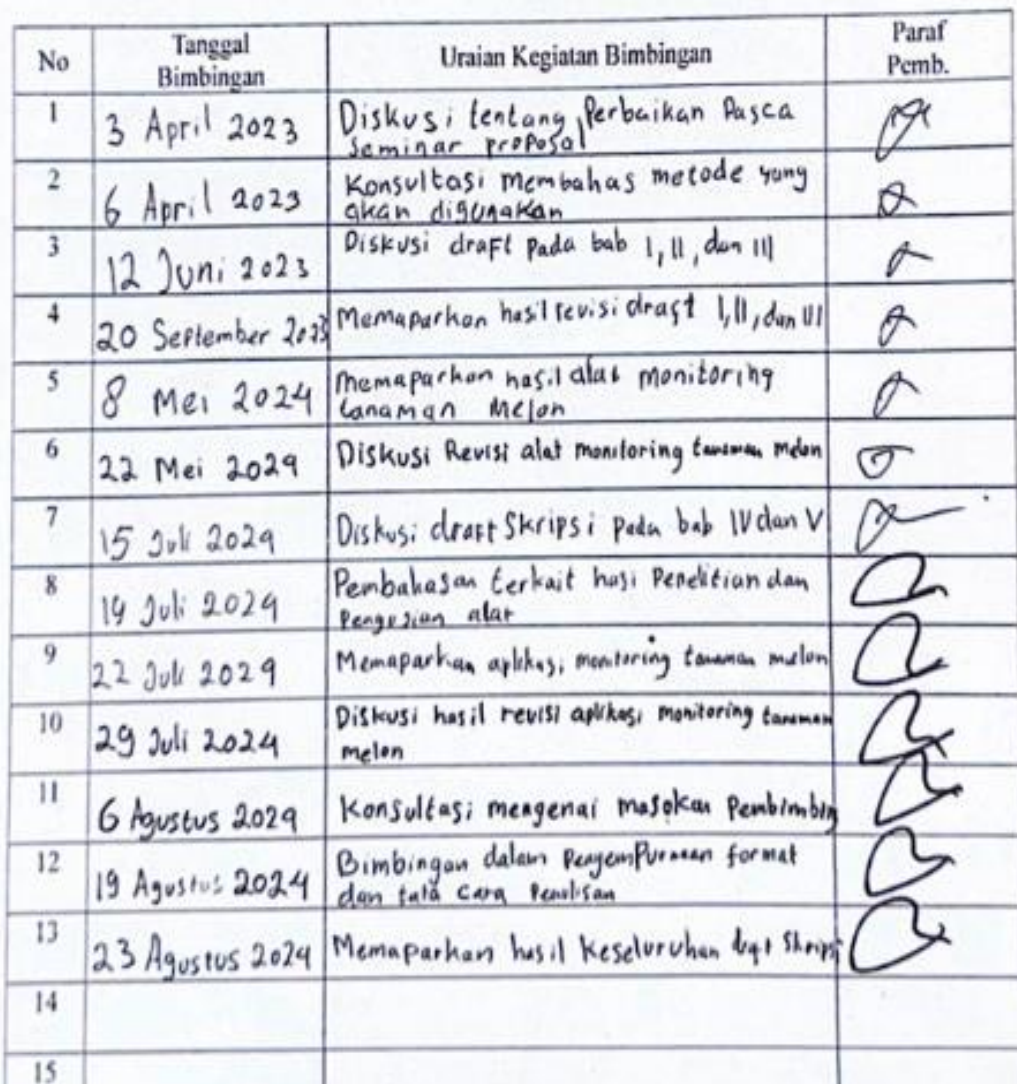 No
Tanggal
Bimbingan
Uraian Kegiatan Bimbingan
Paraf
Pemb.
1
3 April 2023
Diskusi tentang Perbaikan Pasca
Seminar proposal
2
6 April 2023
Konsultasi Membahas metode yang
akan digunakan
3
12 Juni 2023
Diskusi draft pada bab I, II, dan III
4
20 September 2023
Memaparkan hasil revisi draft I, II, dan III
5
8 Mei 2024
Memaparkan hasil alat monitoring
tanaman Melon
6
22 Mei 2024
Diskusi Revisi alat monitoring tanaman melon
7
15 Juli 2024
Diskusi draft Skripsi pada bab IV dan V
8
19 Juli 2024
Pembahasan terkait hasi Penelitian dan
Pengujian alat
9
22 Juli 2024
Memaparkan aplikasi monitoring tanaman melon
10
29 Juli 2024
Diskusi hasil revisi aplikasi monitoring tanaman
melon
11
6 Agustus 2024
Konsultasi mengenai masokan Pembimbing
12
19 Agustus 2024
Bimbingan dalam Penyempurnaan format
dan tata cara Penulisan
13
23 Agustus 2024
Memaparkan hasil Keseluruhan Skripsi
14
15